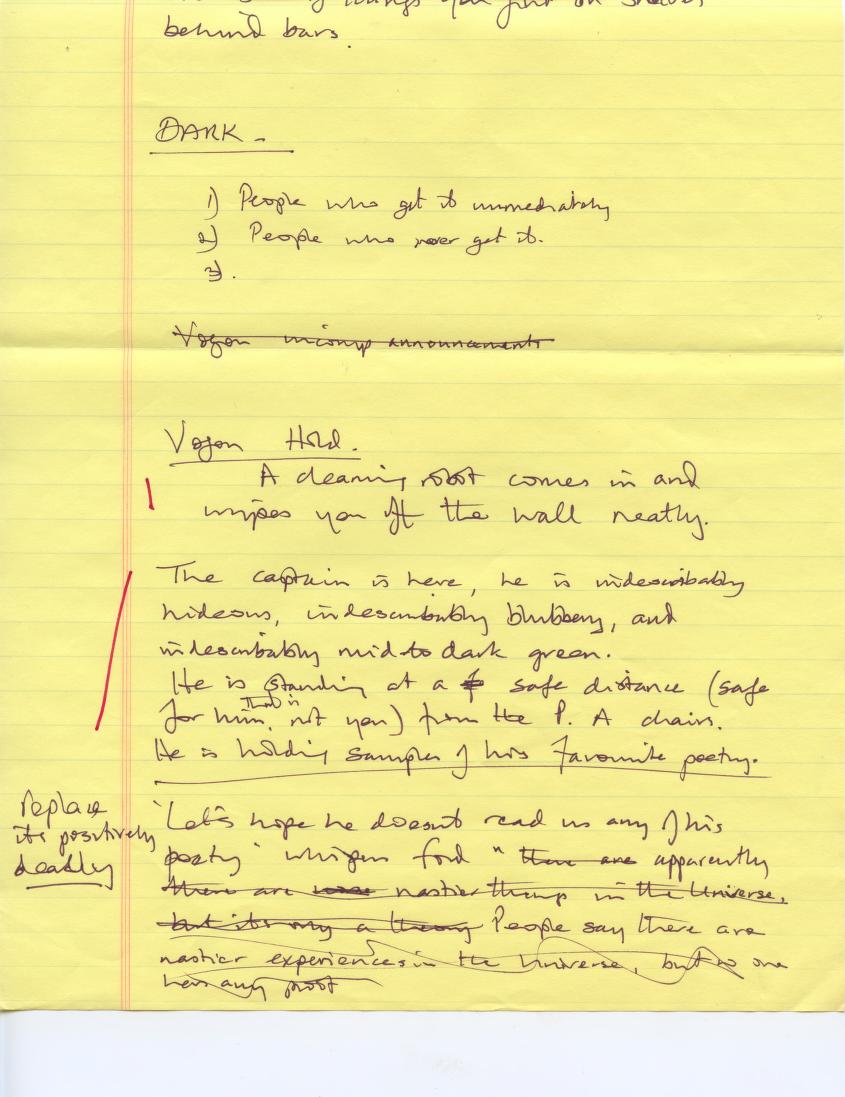 things you find on shelves
behind bars.
DARK -
1) People who get it immediately
2) People who never get it.
3) .
Vogon announcements
Vogon Hold.
A cleaning robot comes in and
wipes you off the wall neatly.
The captain is here, he is indescribably
hideous, indescribably blubbery, and
indescribably mid to dark green.
He is standing at a safe distance (safe
for him, that is, not you) from the P. A chairs.
He is holding samples of his favourite poetry.
replace
its positively
deadly
'Let's hope he doesn't read us any of his
poetry' whispers ford " there are apparently
there are worse nastier things in the Universe,
but its only a theory People say there are
nastier experiences in the Universe, but no one
has any proof